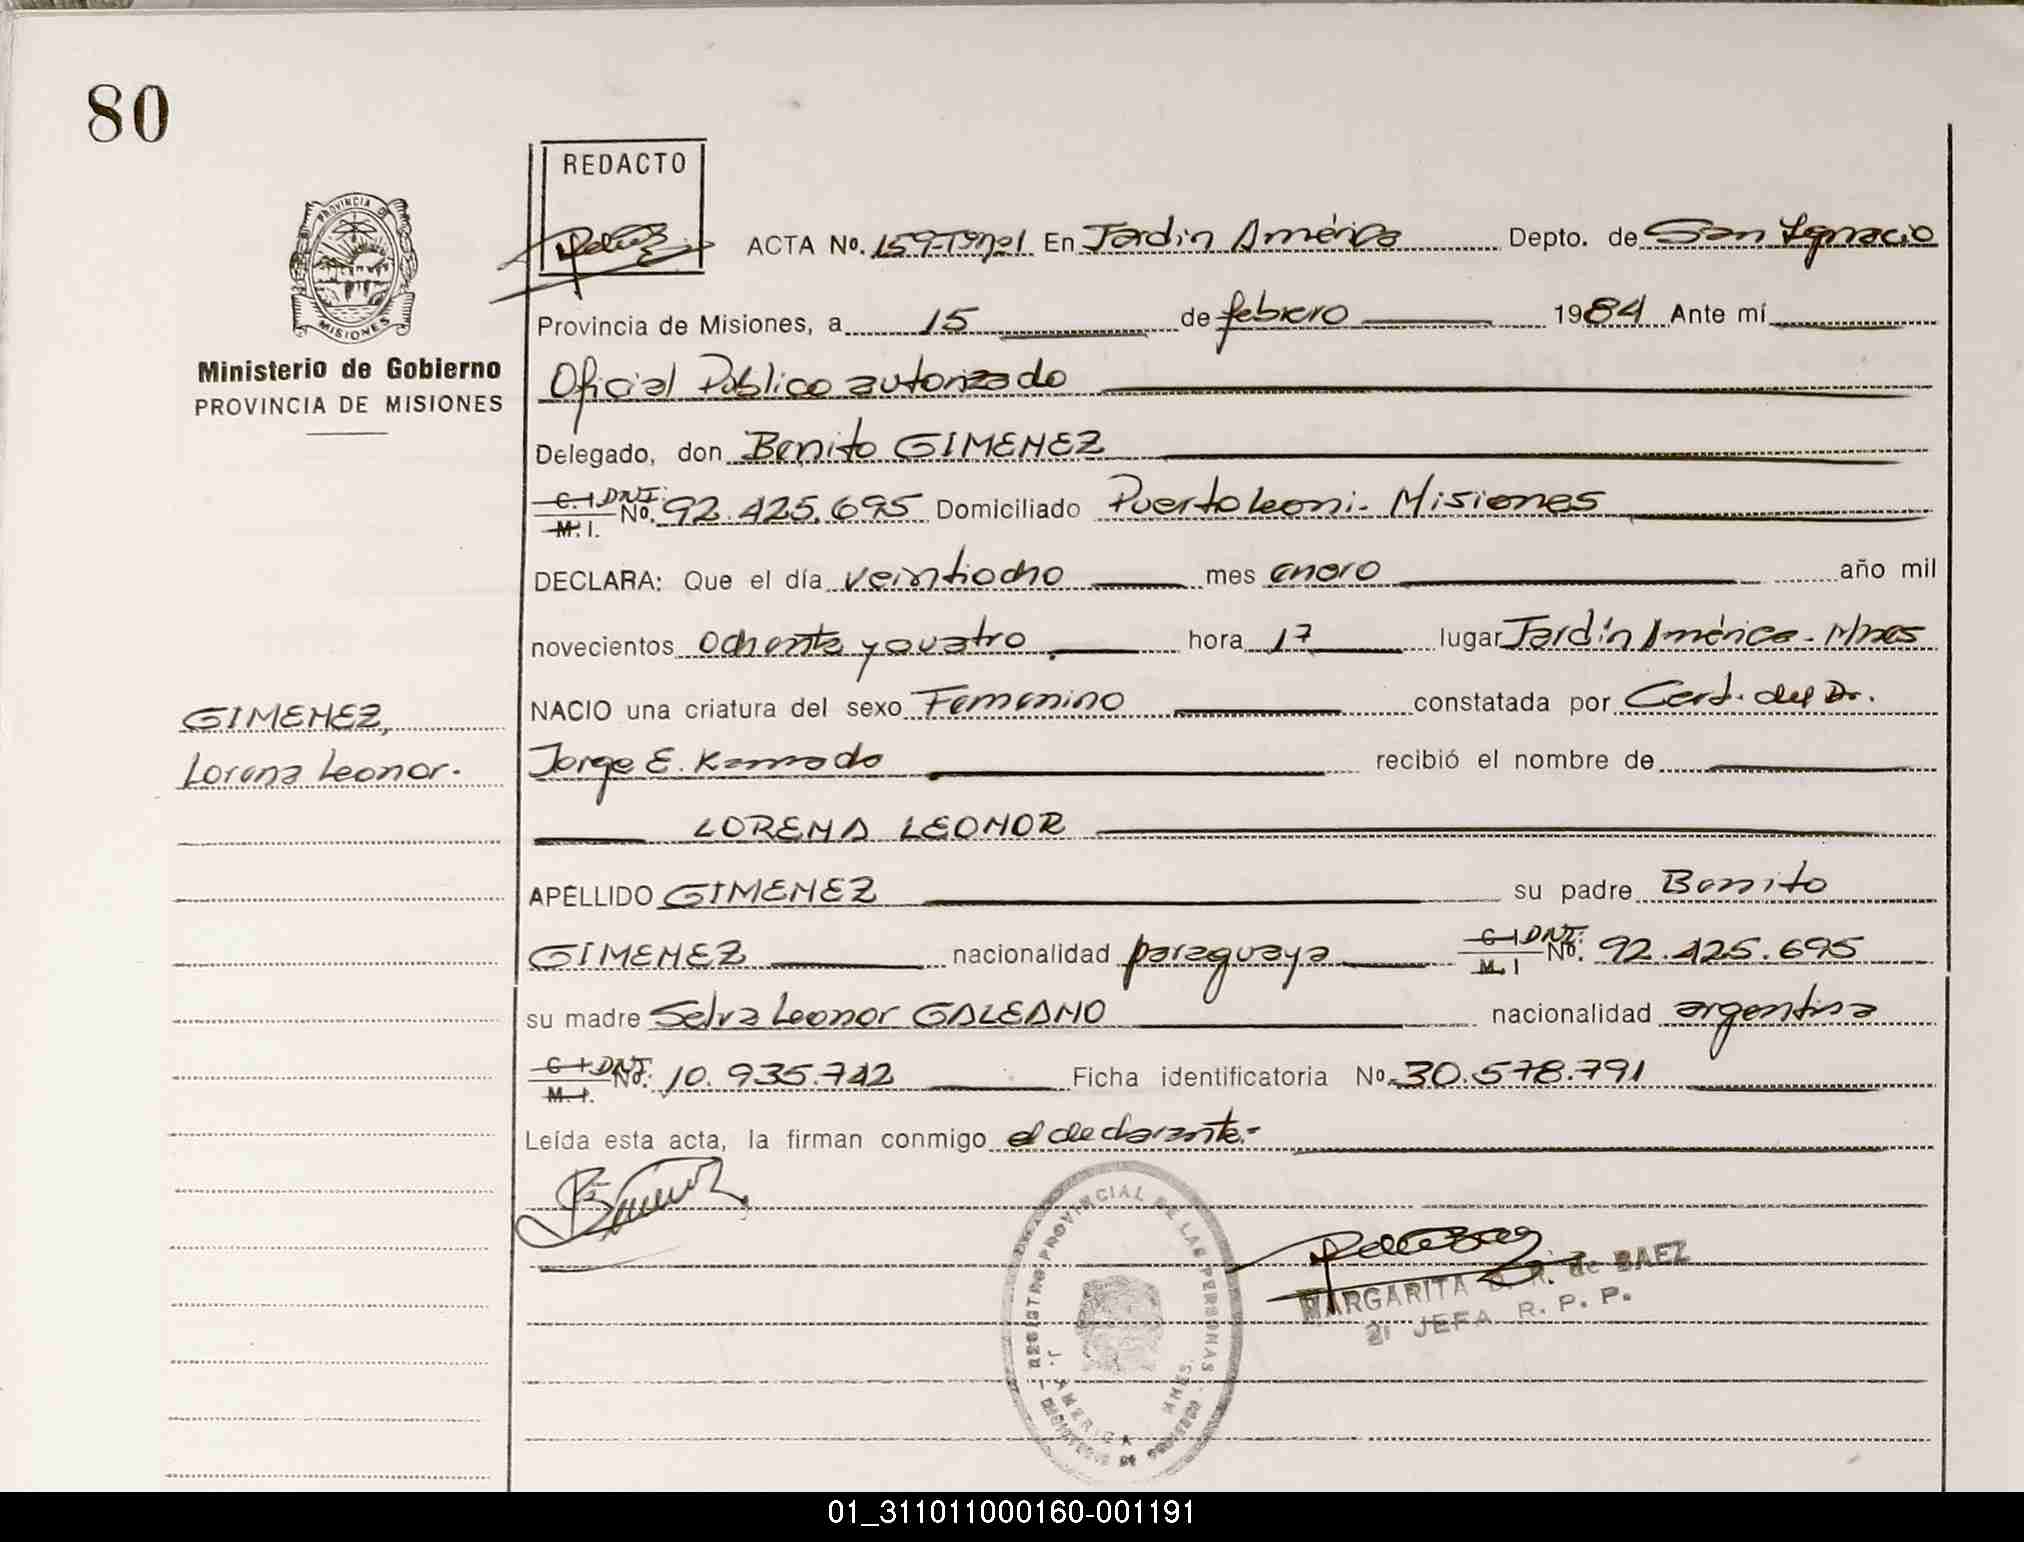 80
REDACTO
PROVINCIA DE
MISIONES
ACTA No. 159-Tº nº1 En Jardín América Depto. de San Ignacio
Provincia de Misiones, a 15 de febrero 1984 Ante mí
Ministerio de Gobierno
PROVINCIA DE MISIONES
Oficial Público autorizado
Delegado, don Benito GIMENEZ
C. I DNI. No. 92.425.695 Domiciliado Puerto Leoni - Misiones
M. I.
DECLARA: Que el día veintiocho mes enero año mil
novecientos ochenta y cuatro hora 17 lugar Jardín América - Mnes
NACIO una criatura del sexo Femenino constatada por Cert. del Dr.
GIMENEZ,
Lorena Leonor.
Jorge E. recibió el nombre de
LORENA LEONOR
APELLIDO GIMENEZ su padre Benito
GIMENEZ nacionalidad paraguaya C I DNI. No. 92.425.695
M. I
su madre Selva Leonor GALEANO nacionalidad argentina
C I DNI. No. 10.935.742 Ficha identificatoria No. 30.578.791
M. I.
Leída esta acta, la firman conmigo el declarante.-
REGISTRO PROVINCIAL DE LAS PERSONAS
J. AMERICA MNES.
MINISTERIO DE GOBIERNO
MARGARITA R. de BAEZ
2ª JEFA R. P. P.
01_311011000160-001191